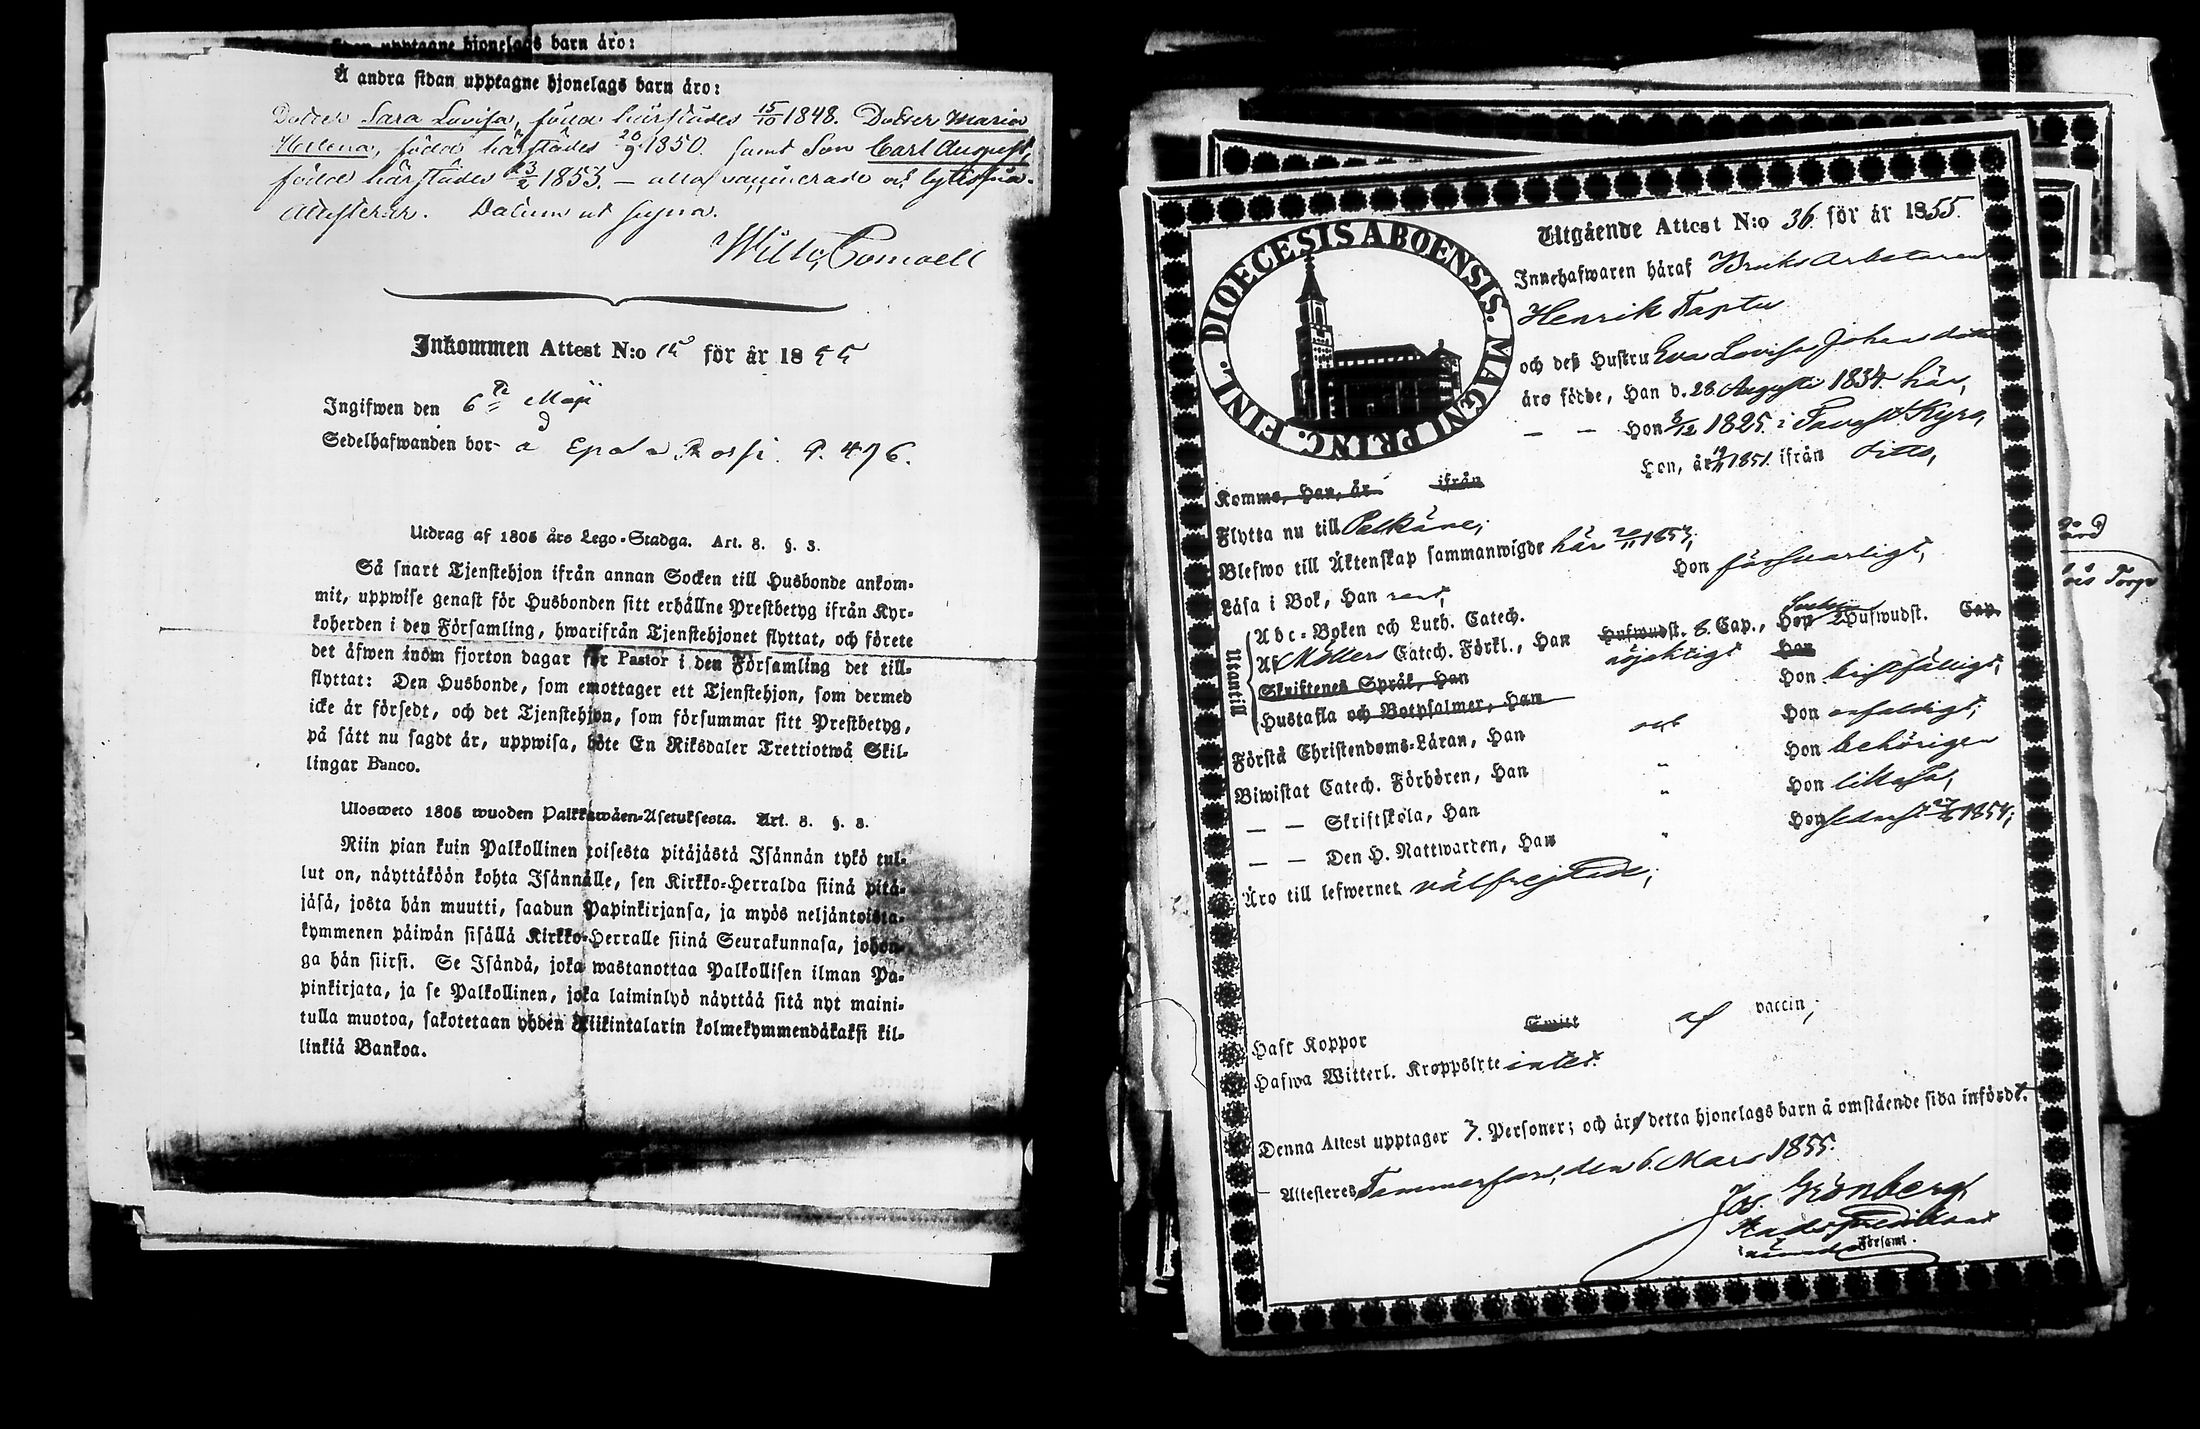 upptagne hjonelags barn äro:
Å andra sidan upptagne hjonelags barn äro:
Dotter Sara Lovisa, född härstädes 15/10 1848. Dotter Maria
Helena, född härstädes 20/9 1850. samt Son Carl August,
född härstädes 23/2 1853. — alla vaccinerade och lytesfria.
Datum ut supra.
Inkommen Attest N:o 15 för år 1855
Ingifwen den 6 Maji
Sedelhafwanden bor å Epaala Rossi P. 476.
Utdrag af 1805 års Lego-Stadga. Art. 8. §. 3.
Så snart Tjenstehjon ifrån annan Socken till Husbonde ankom-
mit, uppwise genast för Husbonden sitt erhållne Prestbetyg ifrån Kyr-
koherden i den Församling, hwarifrån Tjenstehjonet flyttat, och förete
det äfwen inom fjorton dagar för Pastor i den Församling det till-
flyttat: Den Husbonde, som emottager ett Tjenstehjon, som dermed
icke är försedt, och det Tjenstehjon, som försummar sitt Prestbetyg,
på sätt nu sagdt är, uppwisa, böte En Riksdaler Trettiotwå Skil-
lingar Banco.
Ulosweto 1805 wuoden Palkkawäen-Asetuksesta. Art. 8. §. 3.
Niin pian kuin Palkollinen toisesta pitäjästä Isännän tykö tul-
lut on, näyttäköön kohta Isännälle, sen Kirkko-Herralda siinä pitä-
jäsä, josta hän muutti, saadun Papinkirjansa, ja myös neljäntoista-
kymmenen päiwän sisällä Kirkko-Herralle siinä Seurakunnasa, johon-
ga hän siirsi. Se Isändä, joka wastanottaa Palkollisen ilman Pa-
pinkirjata, ja se Palkollinen, joka laiminlyö näyttää sitä nyt maini-
tulla muotoa, sakotetaan yhden Riikintalarin kolmekymmendäkaksi kil-
linkiä Bankoa.
DIOECESIS ABOENSIS. MAGNI PRINC. FINL.
Utgående Attest N:o 36 för år 1855.
Innehafwaren häraf Bruks Arbetaren
Henrik Taptu
och deß Hustru Eva Lovisa Johansdotter
äro födde, Han d. 28 Augusti 1834. här,
— — Hon 3/12 1825. i Tavast Kyro,
Komme, Han, år ifrån Hon, år 1851. ifrån ditto,
Flytta nu till Pälkäne;
Blefwo till Äktenskap sammanwigde här 20/11 1853;
Läsa i Bok, Han rent, Hon försvarligt,
Utantill
Abc-Boken och Luth. Catech. Hufwudst. Cap., Hon Hufwudst. Cap.
Af Möllers Catech. Förkl., Han nöjaktigt Hon bristfälligt,
Skriftenes Språk, Han Han
Hustafla och Botpsalmer, Han
Förstå Christendoms-Läran, Han Hon enfaldigt;
Biwistat Catech. Förhören, Han Hon behörigen
— — Skriftskola, Han Hon likaså,
— — Den H. Nattwarden, Han Hon sednast 1854;
Äro till lefwernet välfrejdade,
Haft Koppor af vaccin;
Hafwa Witterl. Kroppslyte intet.
Denna Attest upptager 7. Personer; och äro detta hjonelags barn å omstående sida införde.
Attesteres Tammerfors, den 6. Mars 1855.
Jos. Grönberg
Församl.